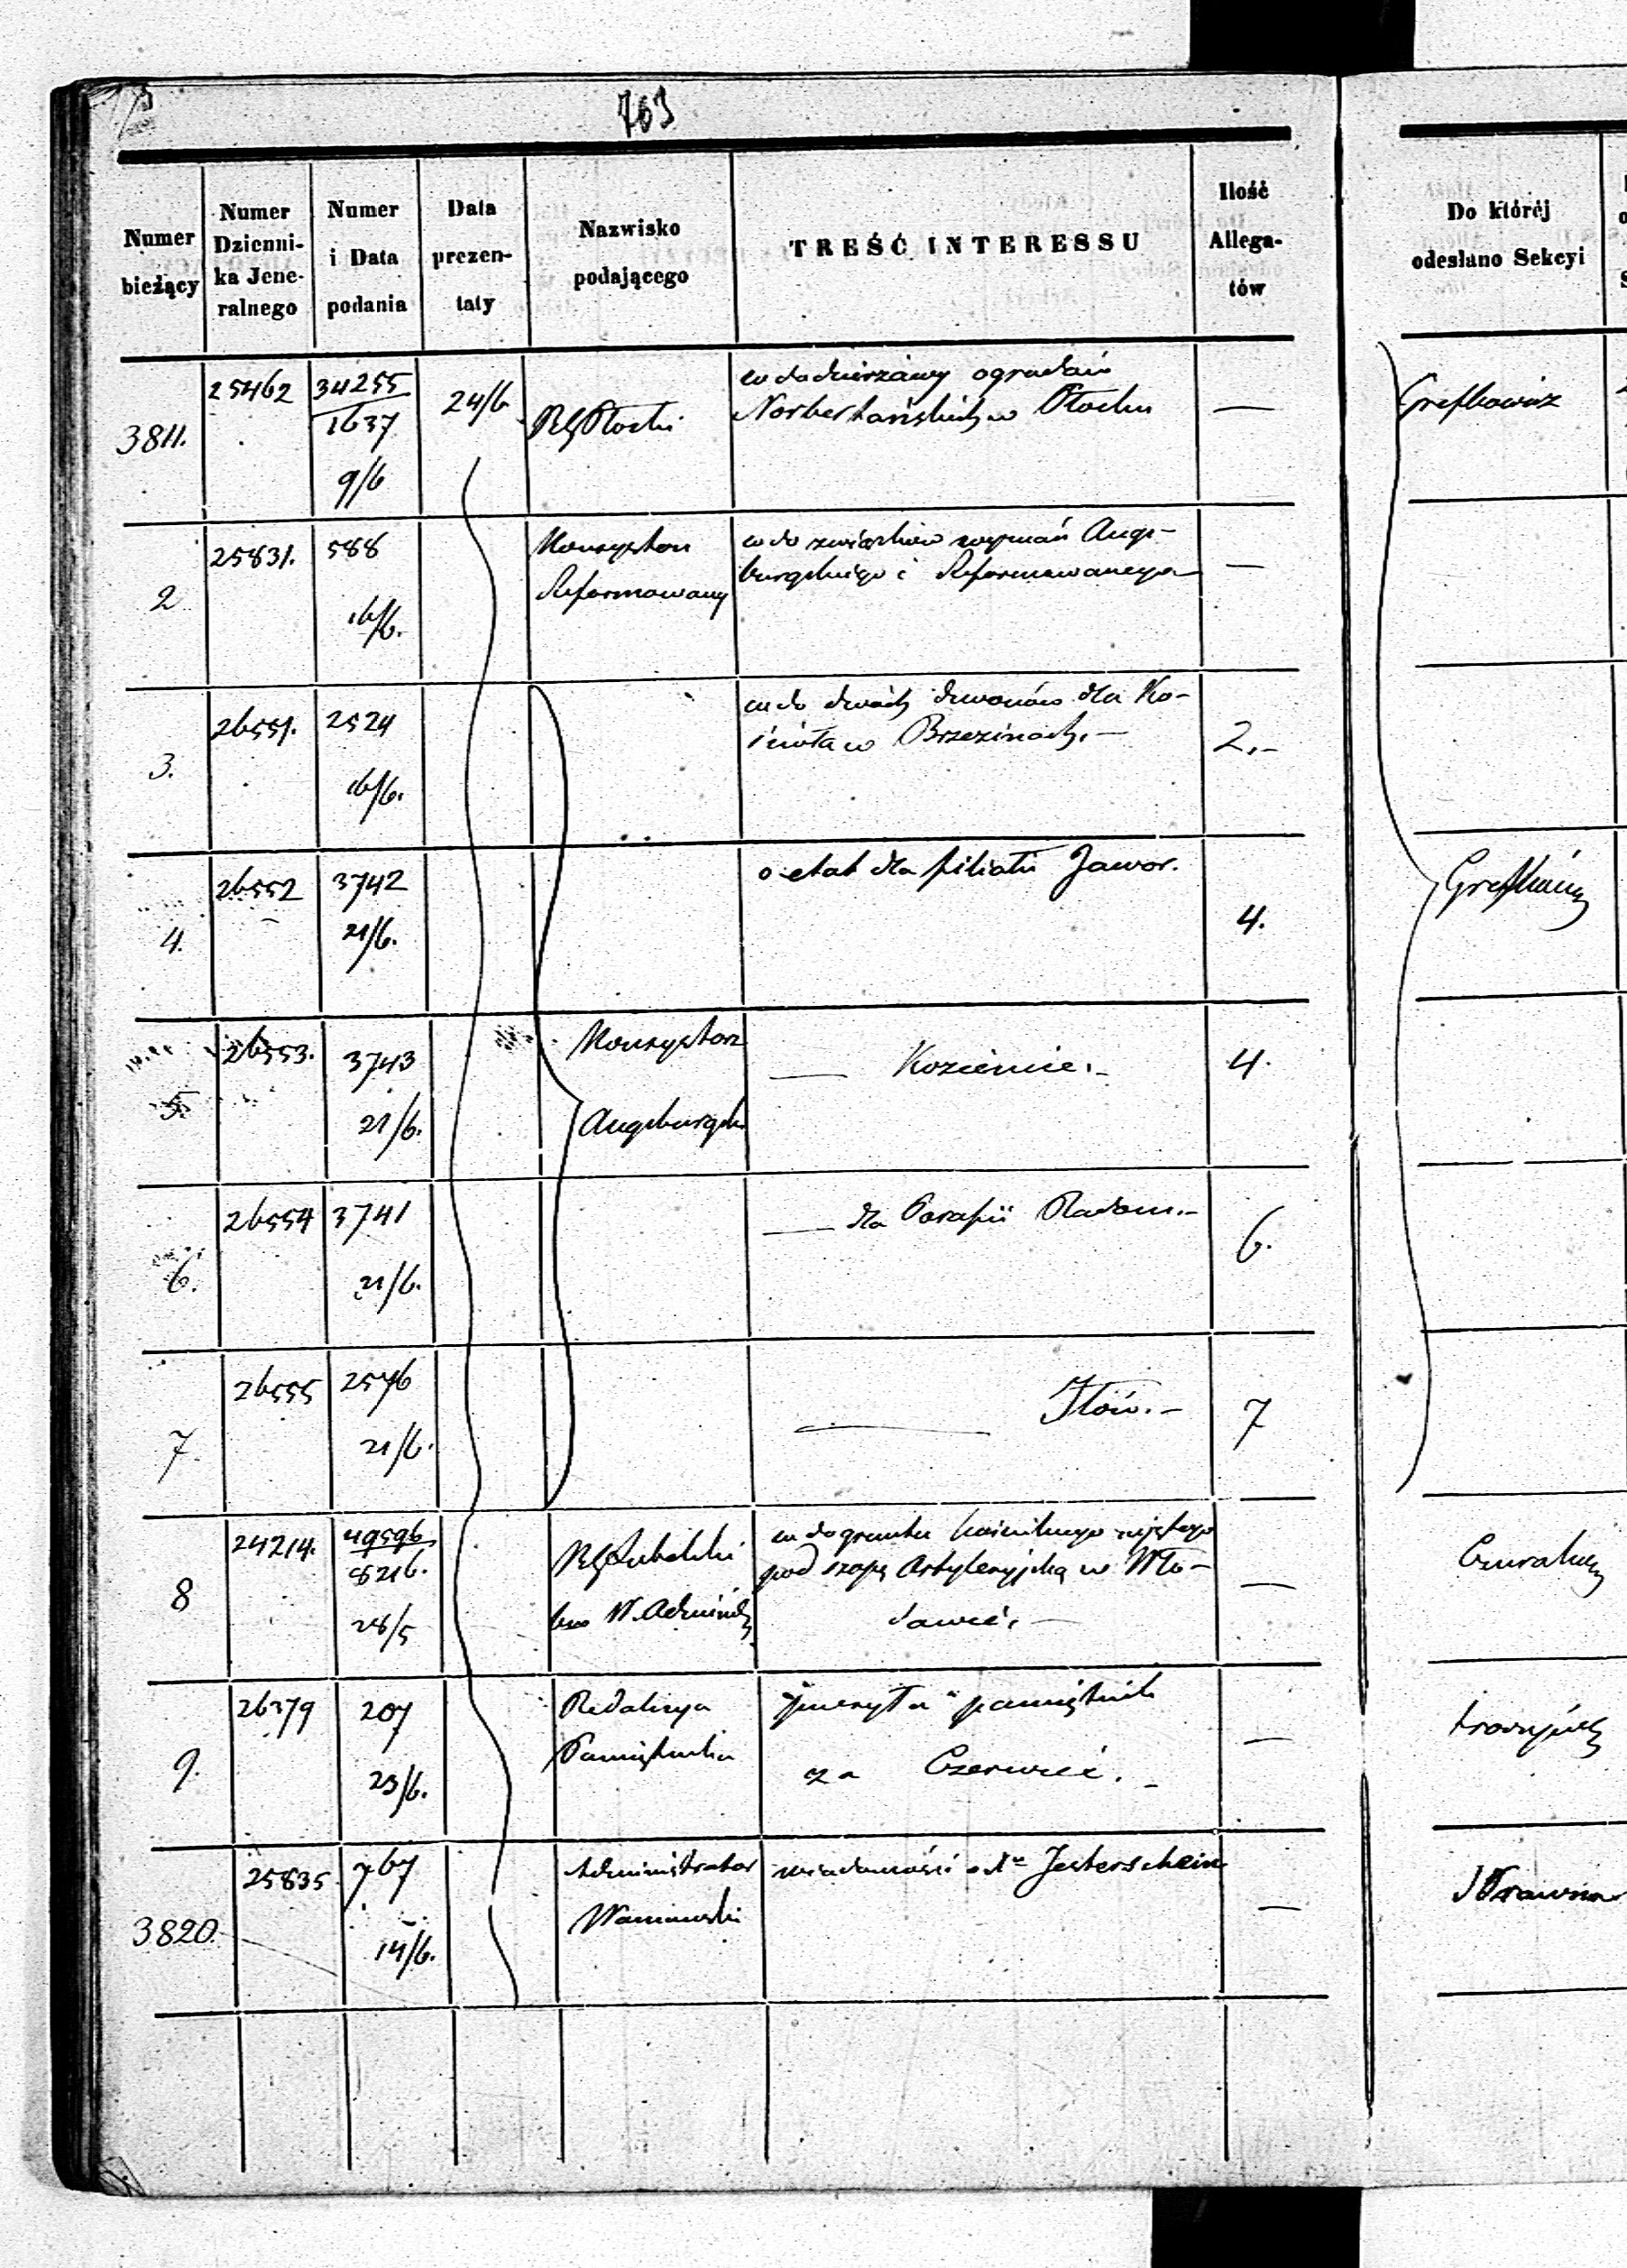 763
Numer bieżący
Numer Dzienni- ka Jene- ralnego
Numer i Data podania
Data prezen- taty
Nazwisko podającego
TREŚĆ INTERESSU
Ilość Allega- tów
Do któréj odesłano Sekcyi
3811.
25462
34255
1637
9/6
24/6
RG Płocki
co do dzierżawy ogrodów
Norbertańskich w Płocku
—
Grefkowicz
2
25831.
588
16/6.
Konsystorz
Reformowany
co do związków wyznań Augs-
burgskiego i Reformowanego
—
3.
26551.
2524
16/6.
co do dwóch dzwonów dla Ko-
ścioła w Brzezinach.—
2.—
4.
26552
3742
21/6.
o etat dla filiału Jawor.
4.
5.
26553.
3743
21/6.
Konsystorz
Augsburgski
— Kozienice.—
4.
6.
26554
3741
21/6.
— dla Parafii Radom.—
6.
7.
26555
2576
21/6.
— Iłów.—
7
8
24214.
49596
8216.
28/5
RG Lubelski
co do gruntu kościelnego zajętego
pod szopę Artyleryjską w Wło-
dawie.—
—
9.
26379
207
23/6.
Redakcya
Pamiętnika
pamiętnik
za Czerwiec.—
—
3820.
25835
767
14/6.
Administrator
wiadomości
—